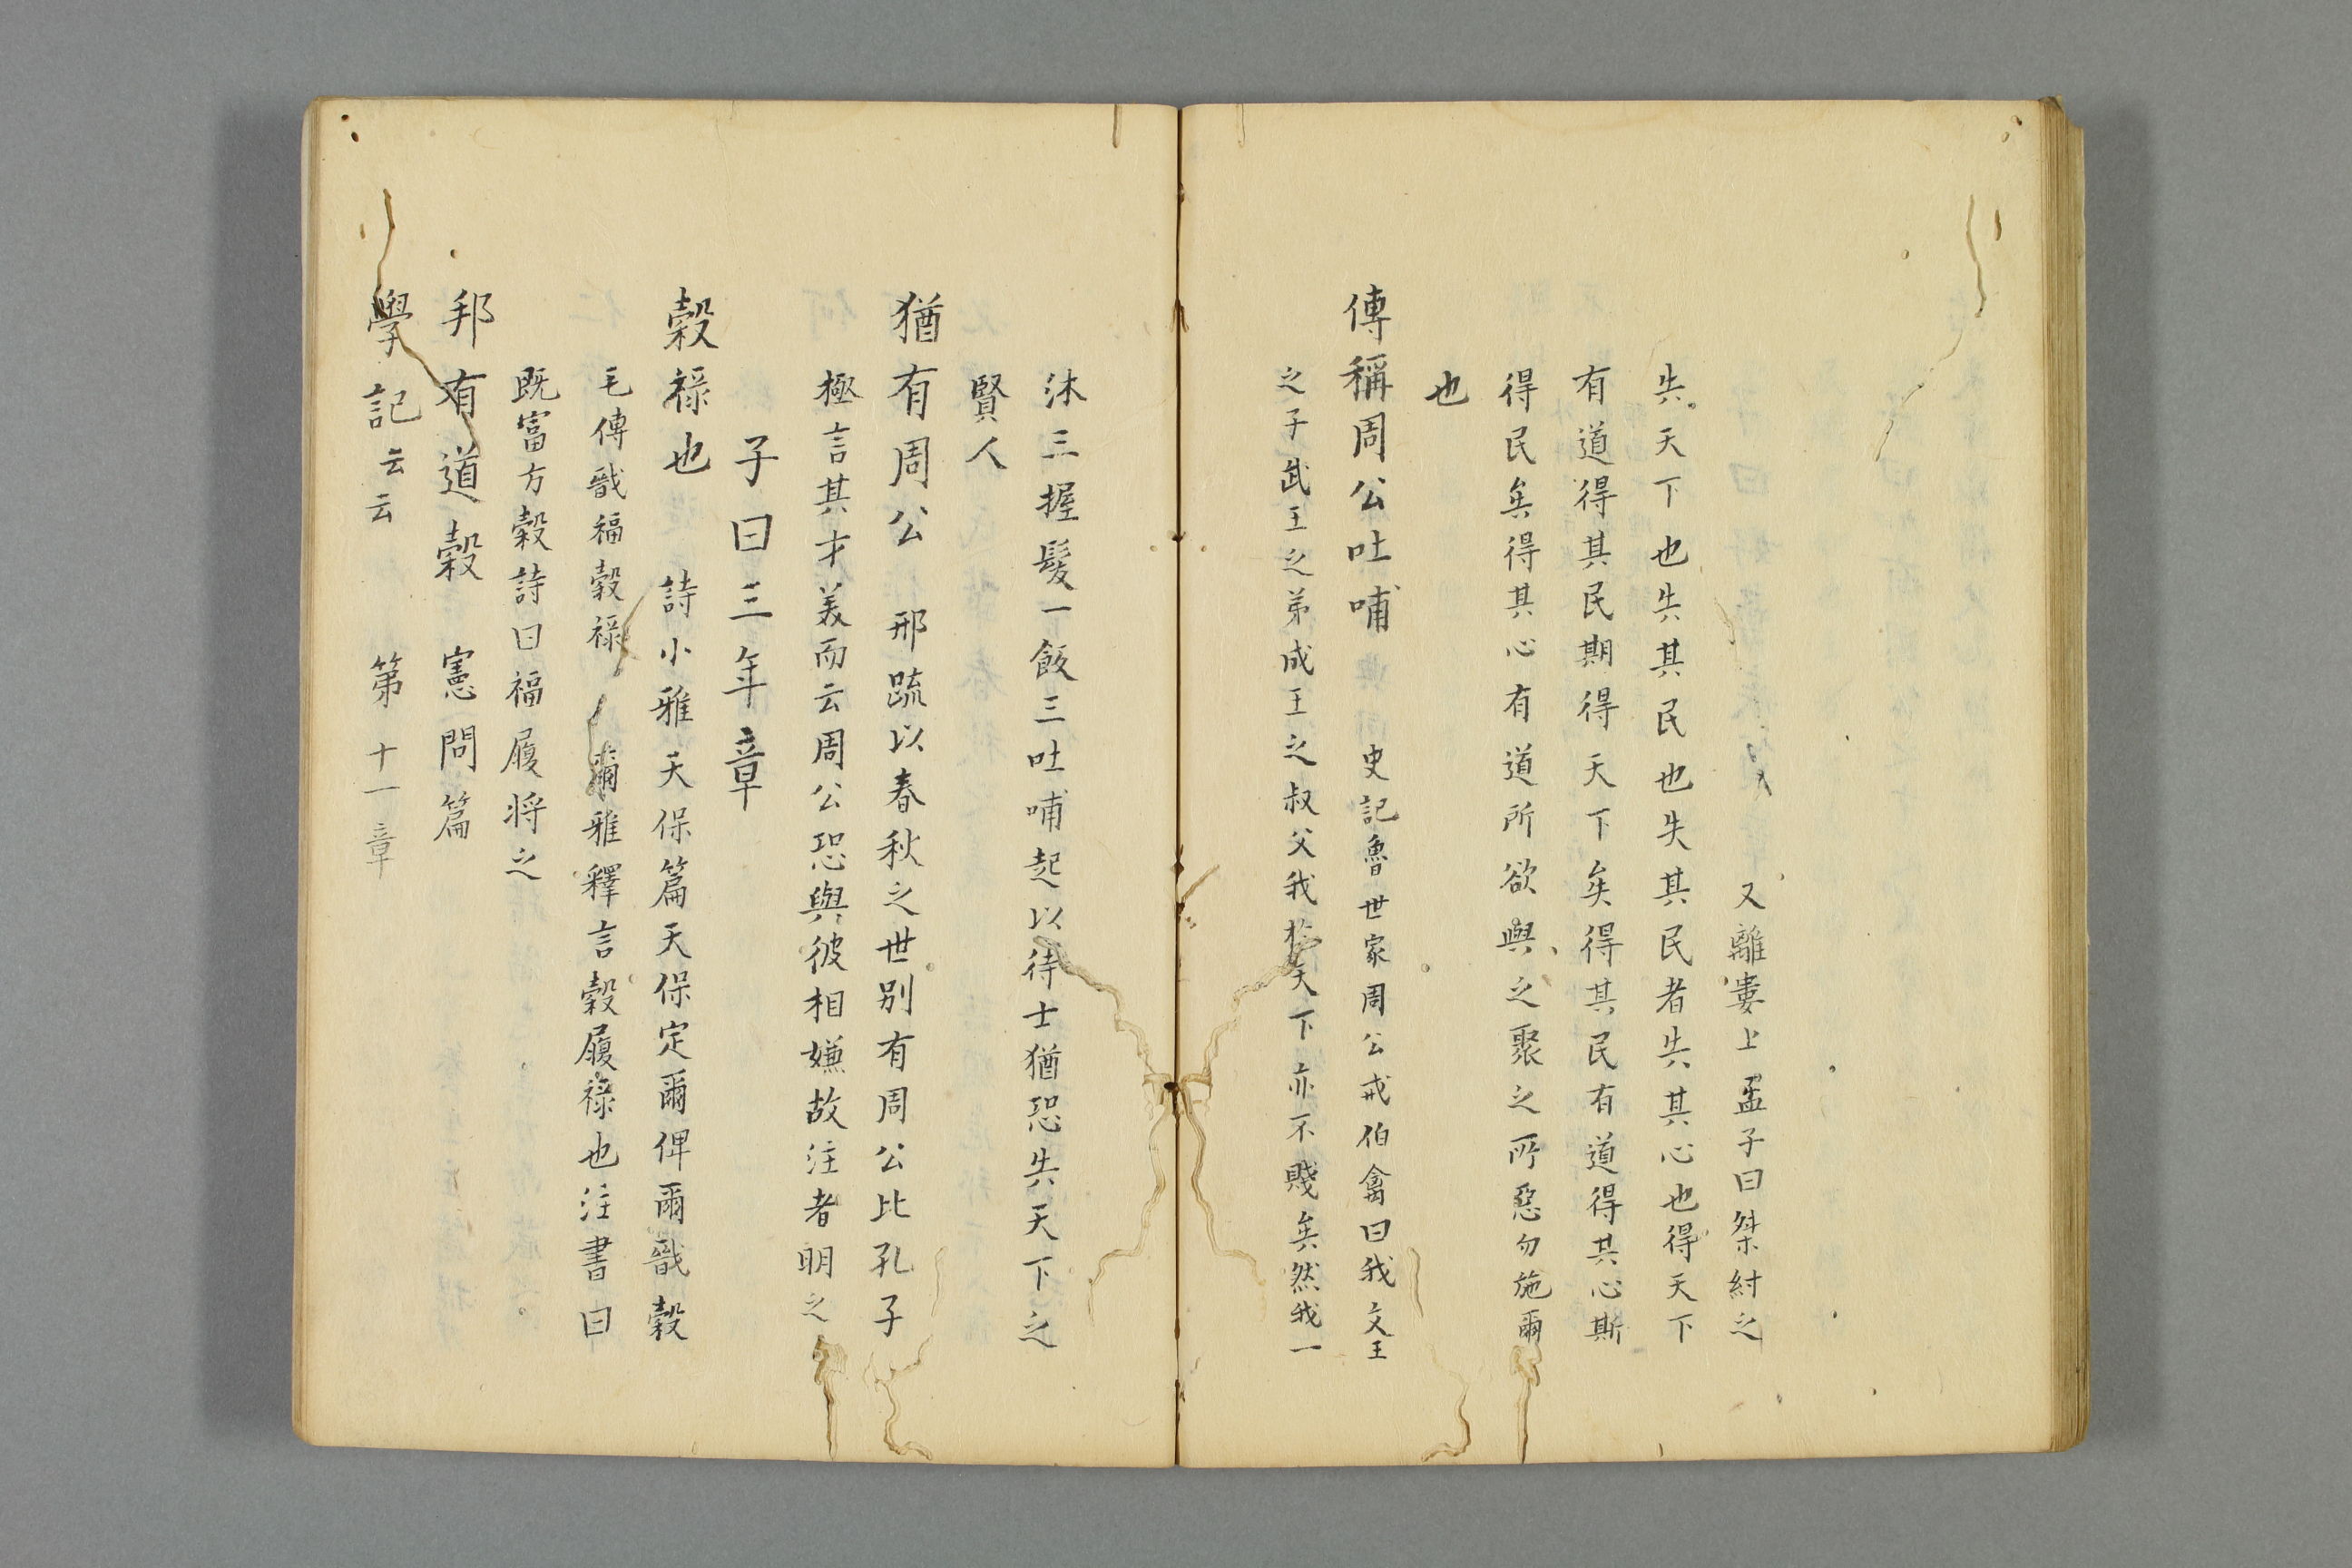 又離婁上孟子曰桀紂之
失天下也失其民也失其民者失其心也得天下
有道得其民期得天下矣得其民有道得其心斯
得民矣得其心有道所欲與之聚之所惡勿施爾
也
傳稱周公吐哺　史記魯世家周公戒伯禽曰我文王
之子武王之弟成王之叔父我於天下亦不賤矣然我一
沐三握髮一飯三吐哺起以待士猶恐失天下之
賢人
猶有周公　邢疏以春秋之世別有周公比孔子
極言其才美而云周公恐與彼相嫌故注者明之
子曰三年章
穀祿也　詩小雅天保篇天保定爾俾爾戩穀
毛傳戩福穀祿　爾雅釋言穀履祿也注書曰
既富方穀詩曰福履将之
邦有道穀　憲問篇
學記云云　第十一章